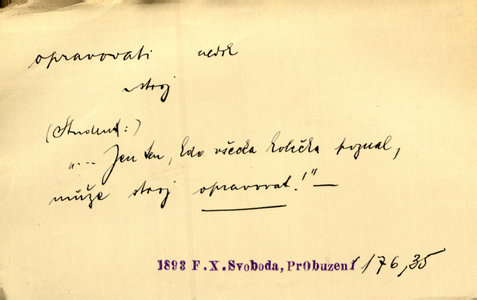 opravovati nedok
stroj
(Student:)
„... Jen ten, kdo všecka kolečka poznal,
může stroj opravovat!“ —
1893 F.X.Svoboda, PrObuzení 176,35